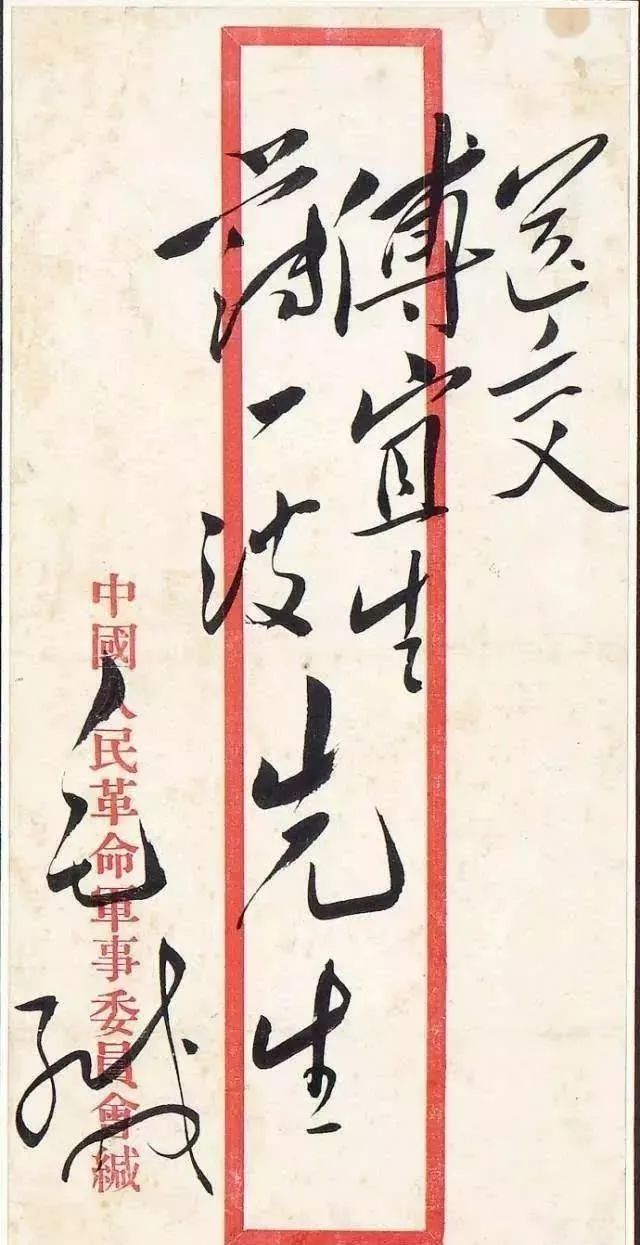 送交
傅宜生
薄一波
先生
毛缄
中國人民革命軍事委員會緘